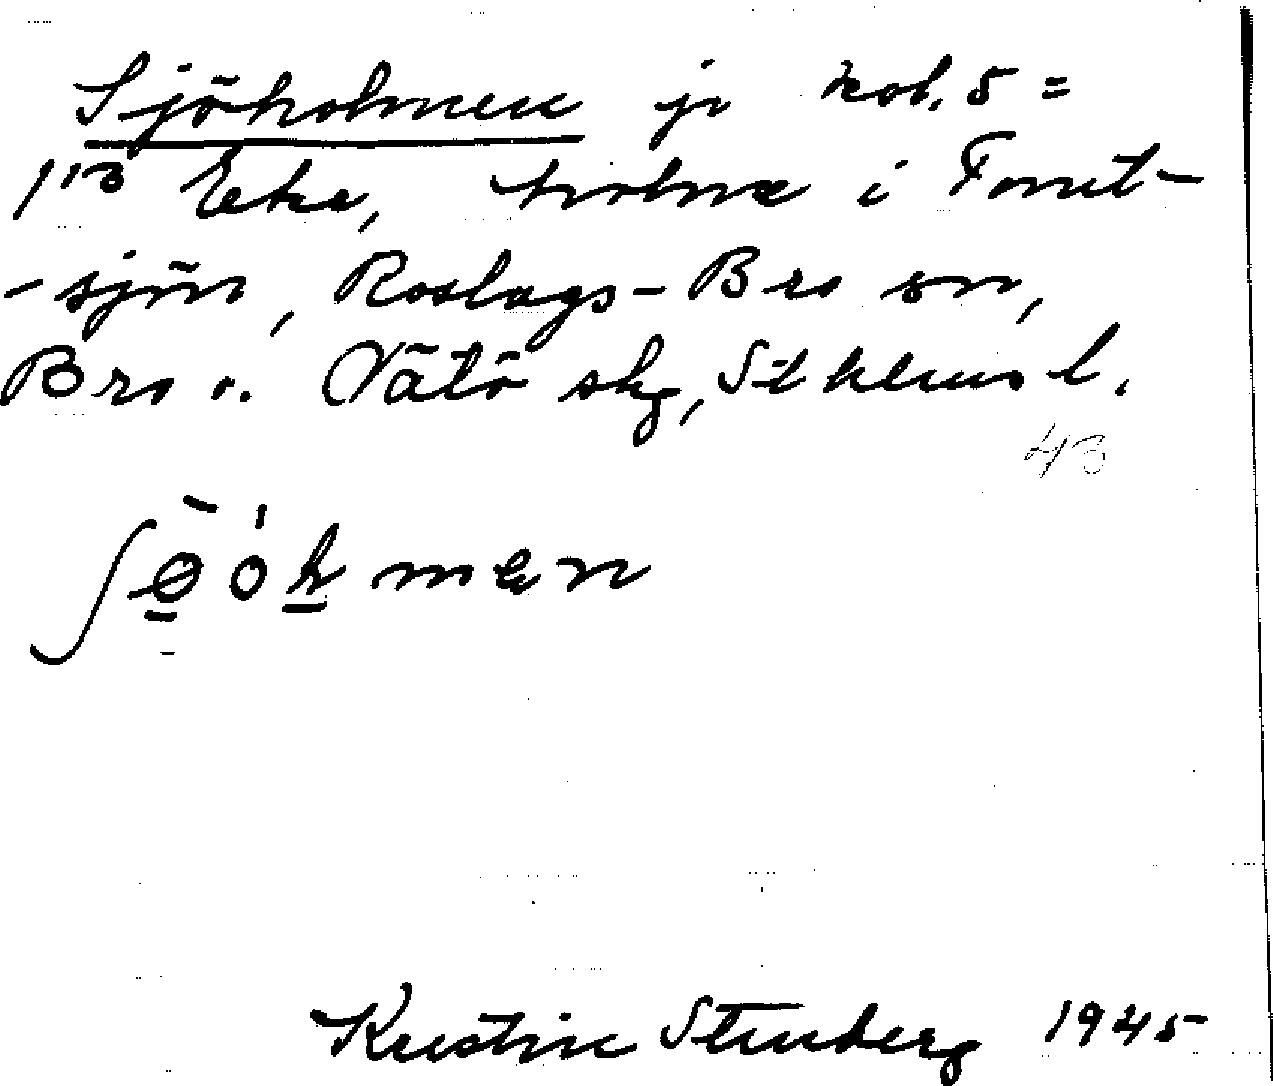 Sjöholmen jr kob. 5 =
1/13 Eke, holme i Tomt-
-sjön, Roslags-Bro sn,
Bro o. Vätö skg, Sthlms l.
43
Kristin Stenberg 1945